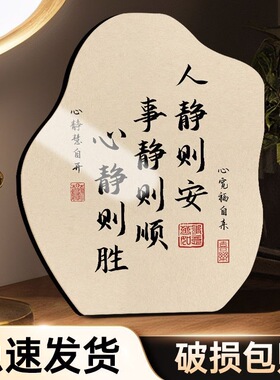 人静则安
事静则顺
心静则胜
心宽福自来
心静慧自开
速发货
破损包